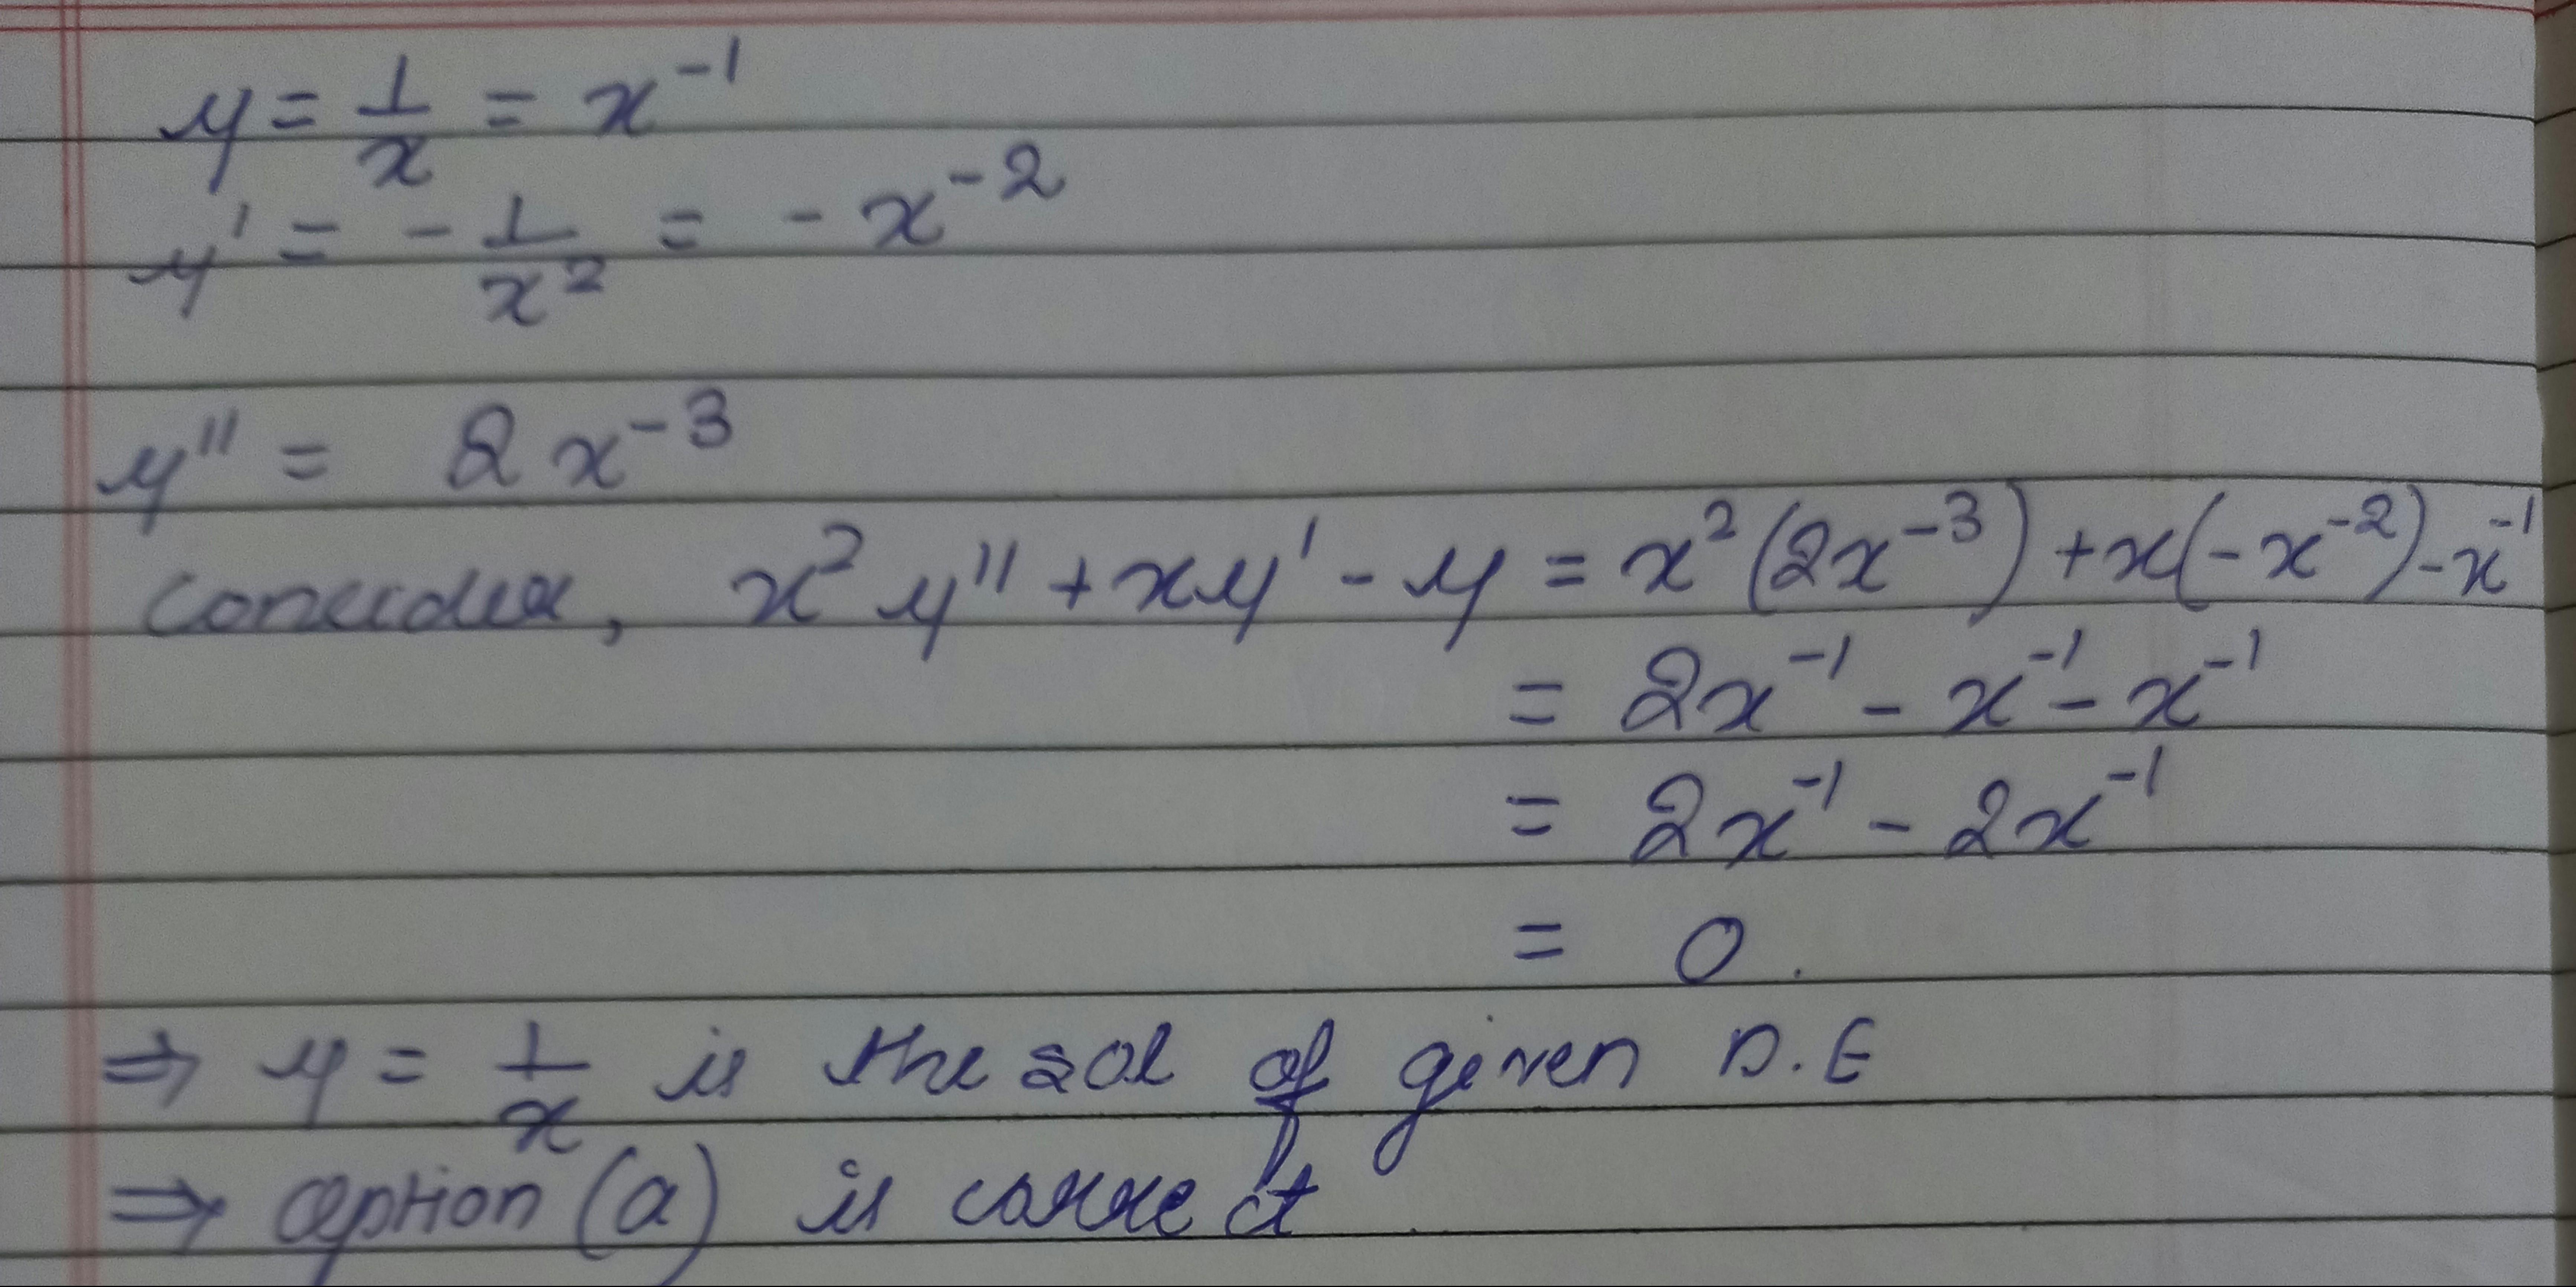 y = 1/x = x⁻¹
y' = - 1/x² = - x⁻²
y'' = 2x⁻³
Consider, x²y'' + xy' - y = x²(2x⁻³) + x(-x⁻²) - x⁻¹
= 2x⁻¹ - x⁻¹ - x⁻¹
= 2x⁻¹ - 2x⁻¹
= 0.
⇒ y = 1/x is the sol of given D.E
⇒ option (a) is correct